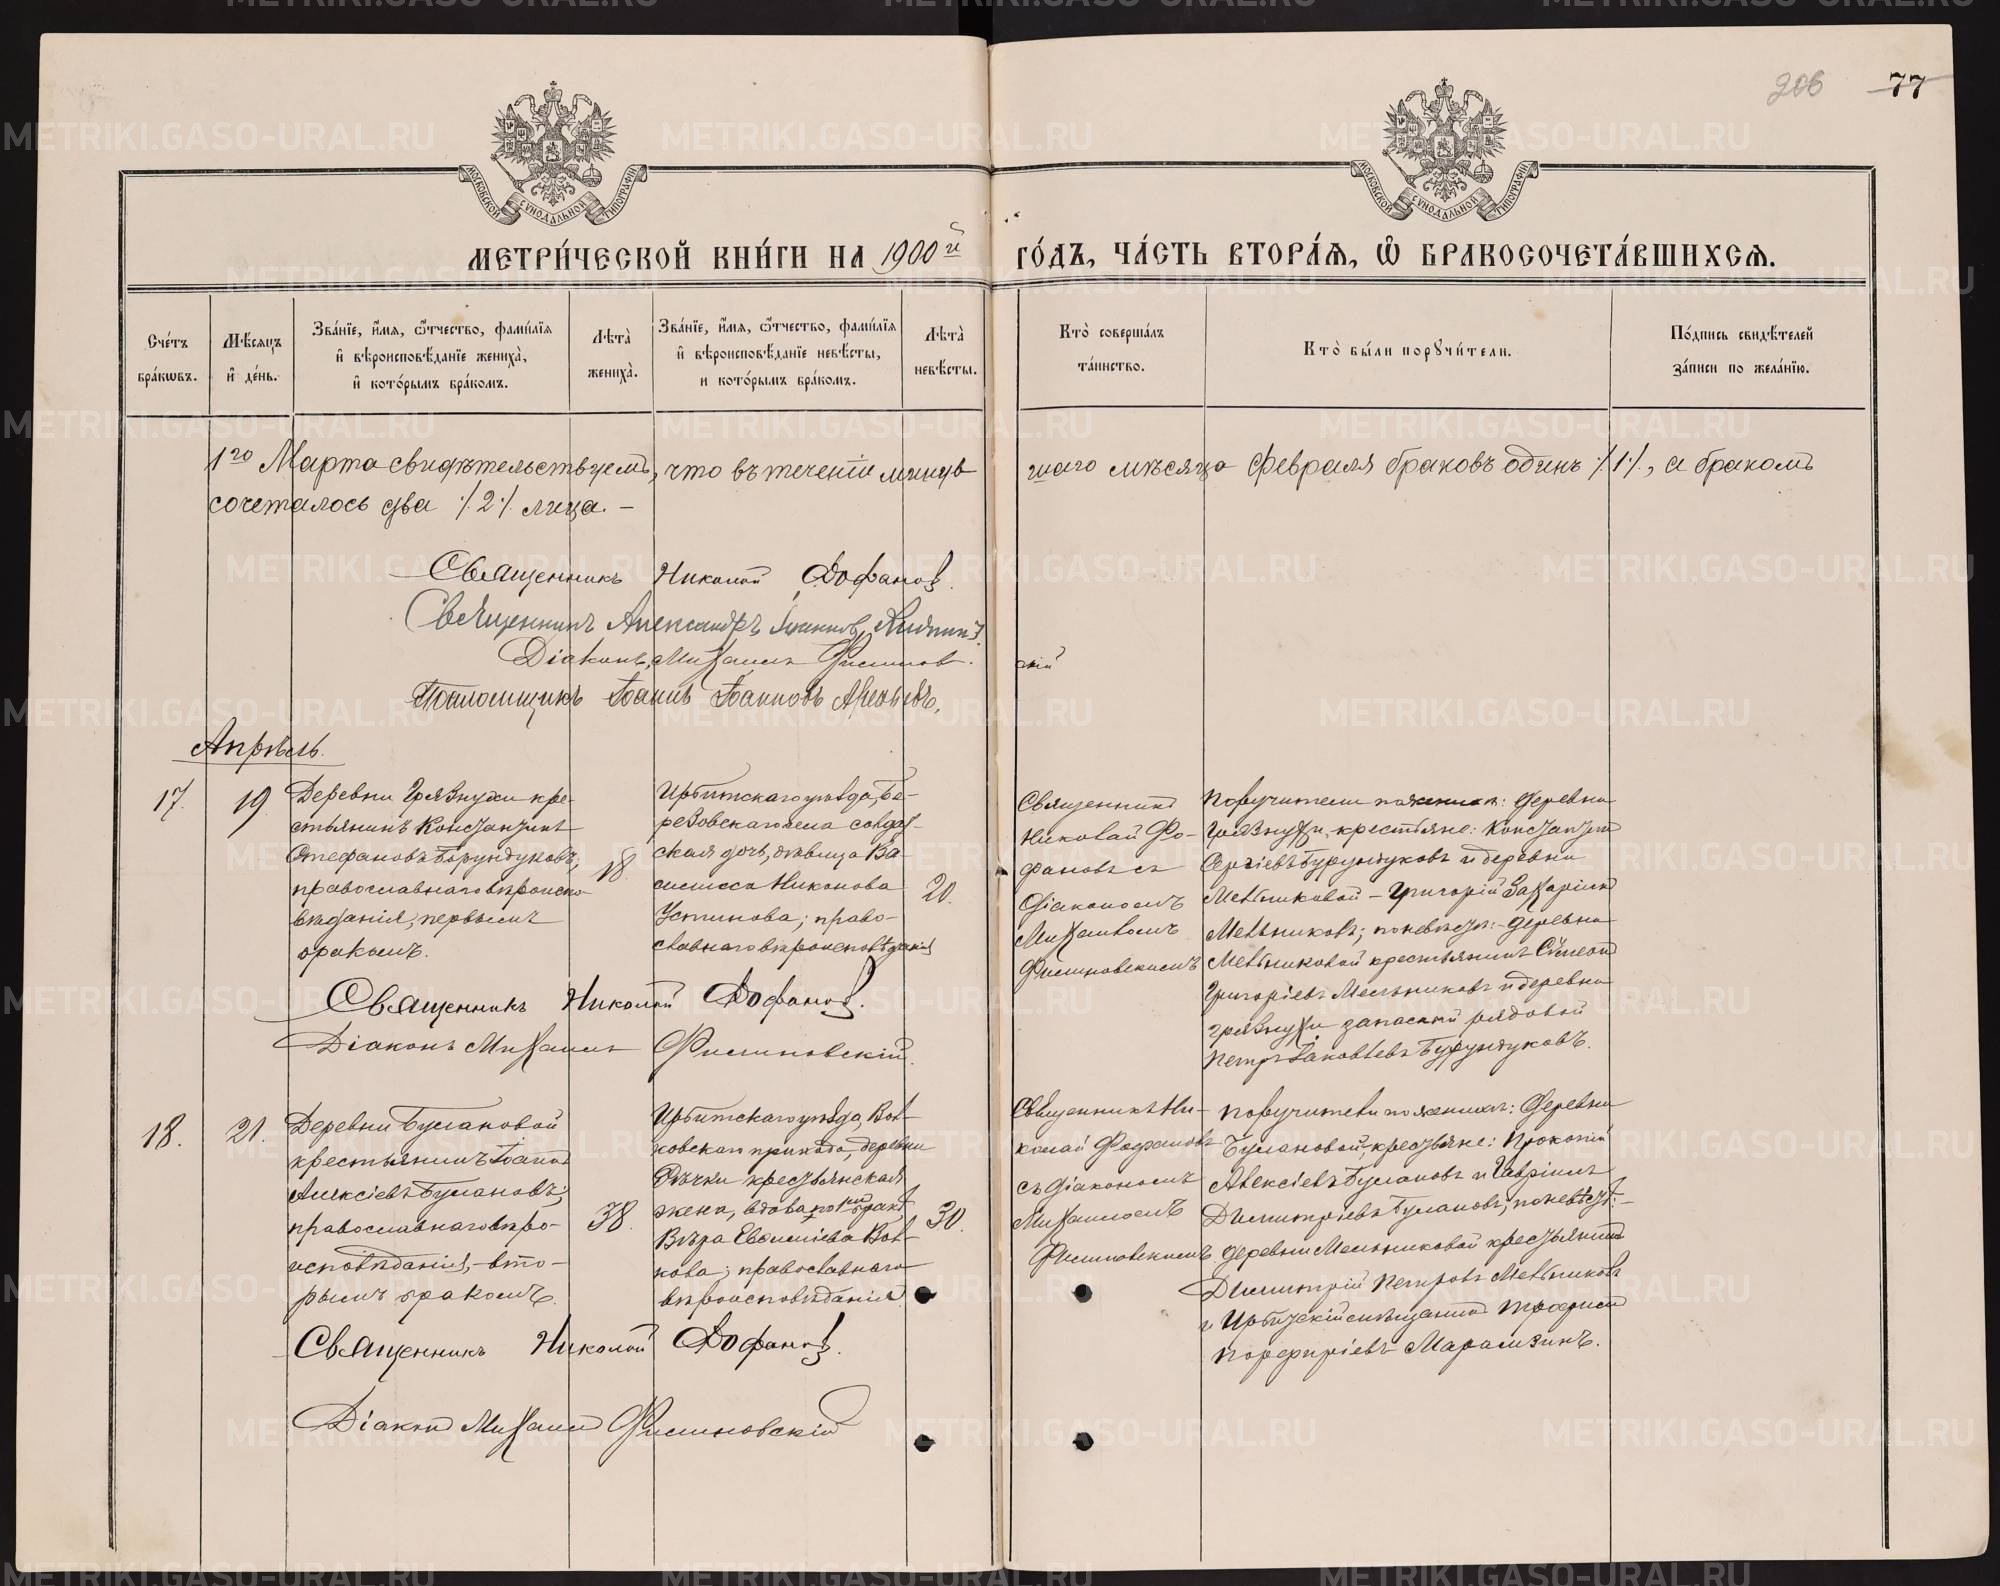 206 77
МОСКОВСКОЙ СѴНОДАЛЬНОЙ ТИПОГРАФІИ
МОСКОВСКОЙ СѴНОДАЛЬНОЙ ТИПОГРАФІИ
МЕТРИ́ЧЕСКОЙ КНИ́ГИ НА 1900й ГО́ДЪ, ЧА́СТЬ ВТОРА́Ѧ, Ѡ҆ БРАКОСОЧЕТА́ВШИХСѦ.
Сче́тъ бра́кѡвъ.
Мѣ́сяцъ и҆ де́нь.
Зва́нїе, и҆́мѧ, ѻ҆́тчество, фами́лїѧ и҆ вѣроисповѣ́данїе жениха̀, и҆ кото́рымъ бра́комъ.
Лѣта̀ жениха̀.
Зва́нїе, и҆́мѧ, ѻ҆́тчество, фами́лїѧ и҆ вѣроисповѣ́данїе невѣ́сты, и кото́рымъ бра́комъ.
Лѣта̀ невѣ́сты.
Кто̀ соверша́лъ та́инство.
Кто̀ бы́ли порꙋчи́тели.
По́дпись свидѣ́телей за́писи по жела́нїю.
1го Марта свидѣтельствуемъ, что въ теченіи минув шаго мѣсяца Февраля браковъ одинъ /.1./, а бракомъ
сочеталось два /.2./ лица. –
Священникъ Николай Фофановъ.
Священникъ Александръ
Діаконъ Михаилъ
скій
Псаломщикъ Іоаннъ Іоанновъ
Апрѣль.
17. 19.
Деревни Грязнухи кре-
стьянинъ Константинъ
Стефановъ Бурундуковъ;
православнаго вѣроиспо-
вѣданія, первымъ
бракомъ.
18.
Ирбитскаго уѣзда, Бе-
резовскаго села солдат-
ская дочь, дѣвица Ва-
силисса Никонова
Устинова; право-
славнаго вѣроисповѣданія
20.
Священникъ
Николай Фо-
фановъ съ
діакономъ
Михаиломъ
Филиновскимъ
Поручители по женихѣ: деревни
Грязнухи, крестьяне: Константинъ
Сергіевъ Бурундуковъ и деревни
Мельниковой – Григорій Захаріинъ
Мельниковъ; по невѣстѣ: – деревни
Мельниковой крестьянинъ Сѵмеонъ
Григоріевъ Мельниковъ и деревни
Грязнухи запасный рядовой
Петръ Іаковлевъ Бурундуковъ.
Священникъ Николай Фофановъ.
Діаконъ Михаилъ Филиновскій.
18. 21.
Деревни Булановой
крестьянинъ Іоаннъ
Алексіевъ Булановъ;
православнаго вѣро-
исповѣданія, – вто-
рымъ бракомъ.
38.
Ирбитскаго уѣзда, Вол-
ковскаго прихода, деревни
Рѣчки крестьянская
жена, вдова по 1мъ бракѣ
Вѣра Евсигніева Вол-
кова; православнаго
вѣроисповѣданія.
30.
Священникъ Ни-
колай Фофановъ
съ діакономъ
Михаиломъ
Филиновскимъ.
Поручители по женихѣ: деревни
Булановой, крестьяне: Прокопій
Алексіевъ Булановъ и Гавріилъ
Димитріевъ Булановъ; по невѣстѣ: –
деревни Мельниковой крестьянинъ
Димитрій Петровъ Мельниковъ
и Ирбитскій мѣщанинъ Трофимъ
Порфиріевъ Марамзинъ.
Священникъ Николай Фофановъ.
Діаконъ Михаилъ Филиновскій